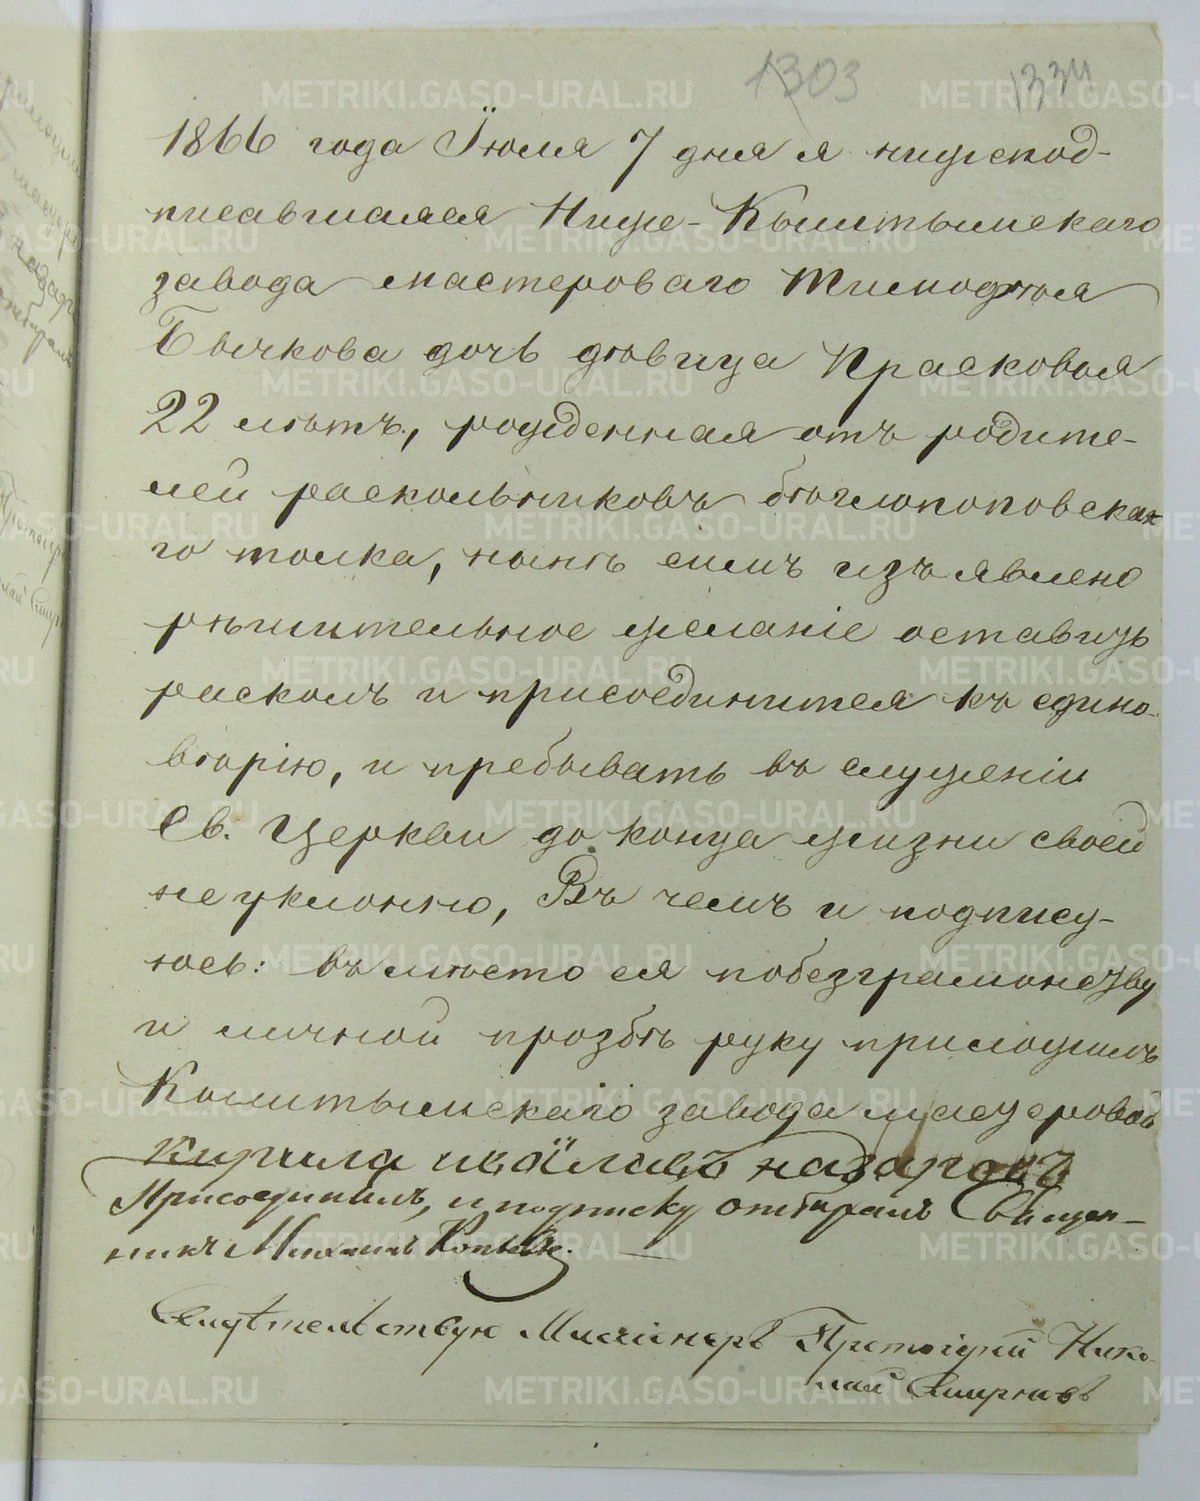 1303 1334
1866 года Іюля 7 дня я нижепод-
писавшаяся Ниже-Кыштымскаго
завода мастероваго Тимофѣя
Бычкова дочь дѣвица Прасковья
22 лѣтъ, рожденная отъ родите-
лей раскольниковъ бѣглопоповска-
го толка, нынѣ симъ изъявлено
рѣшительное желаніе оставить
расколъ и присоединится къ едино-
вѣрію, и пребывать въ служеніи
Св. Церкви до конца жизни своей
неуклонно, Въ чемъ и подпису-
юсь: въ мѣсто ея побезграмонству
и личной прозбѣ руку приложилъ
Кыштымскаго завода мастеровой
Кирила назаровъ
Присоединилъ, и подписку отбиралъ Священ-
никъ Михаилъ
Свидѣтельствую Миссіонеръ Протоіерей Нико-
лай Смирновъ
METRIKI.GASO-URAL.RU